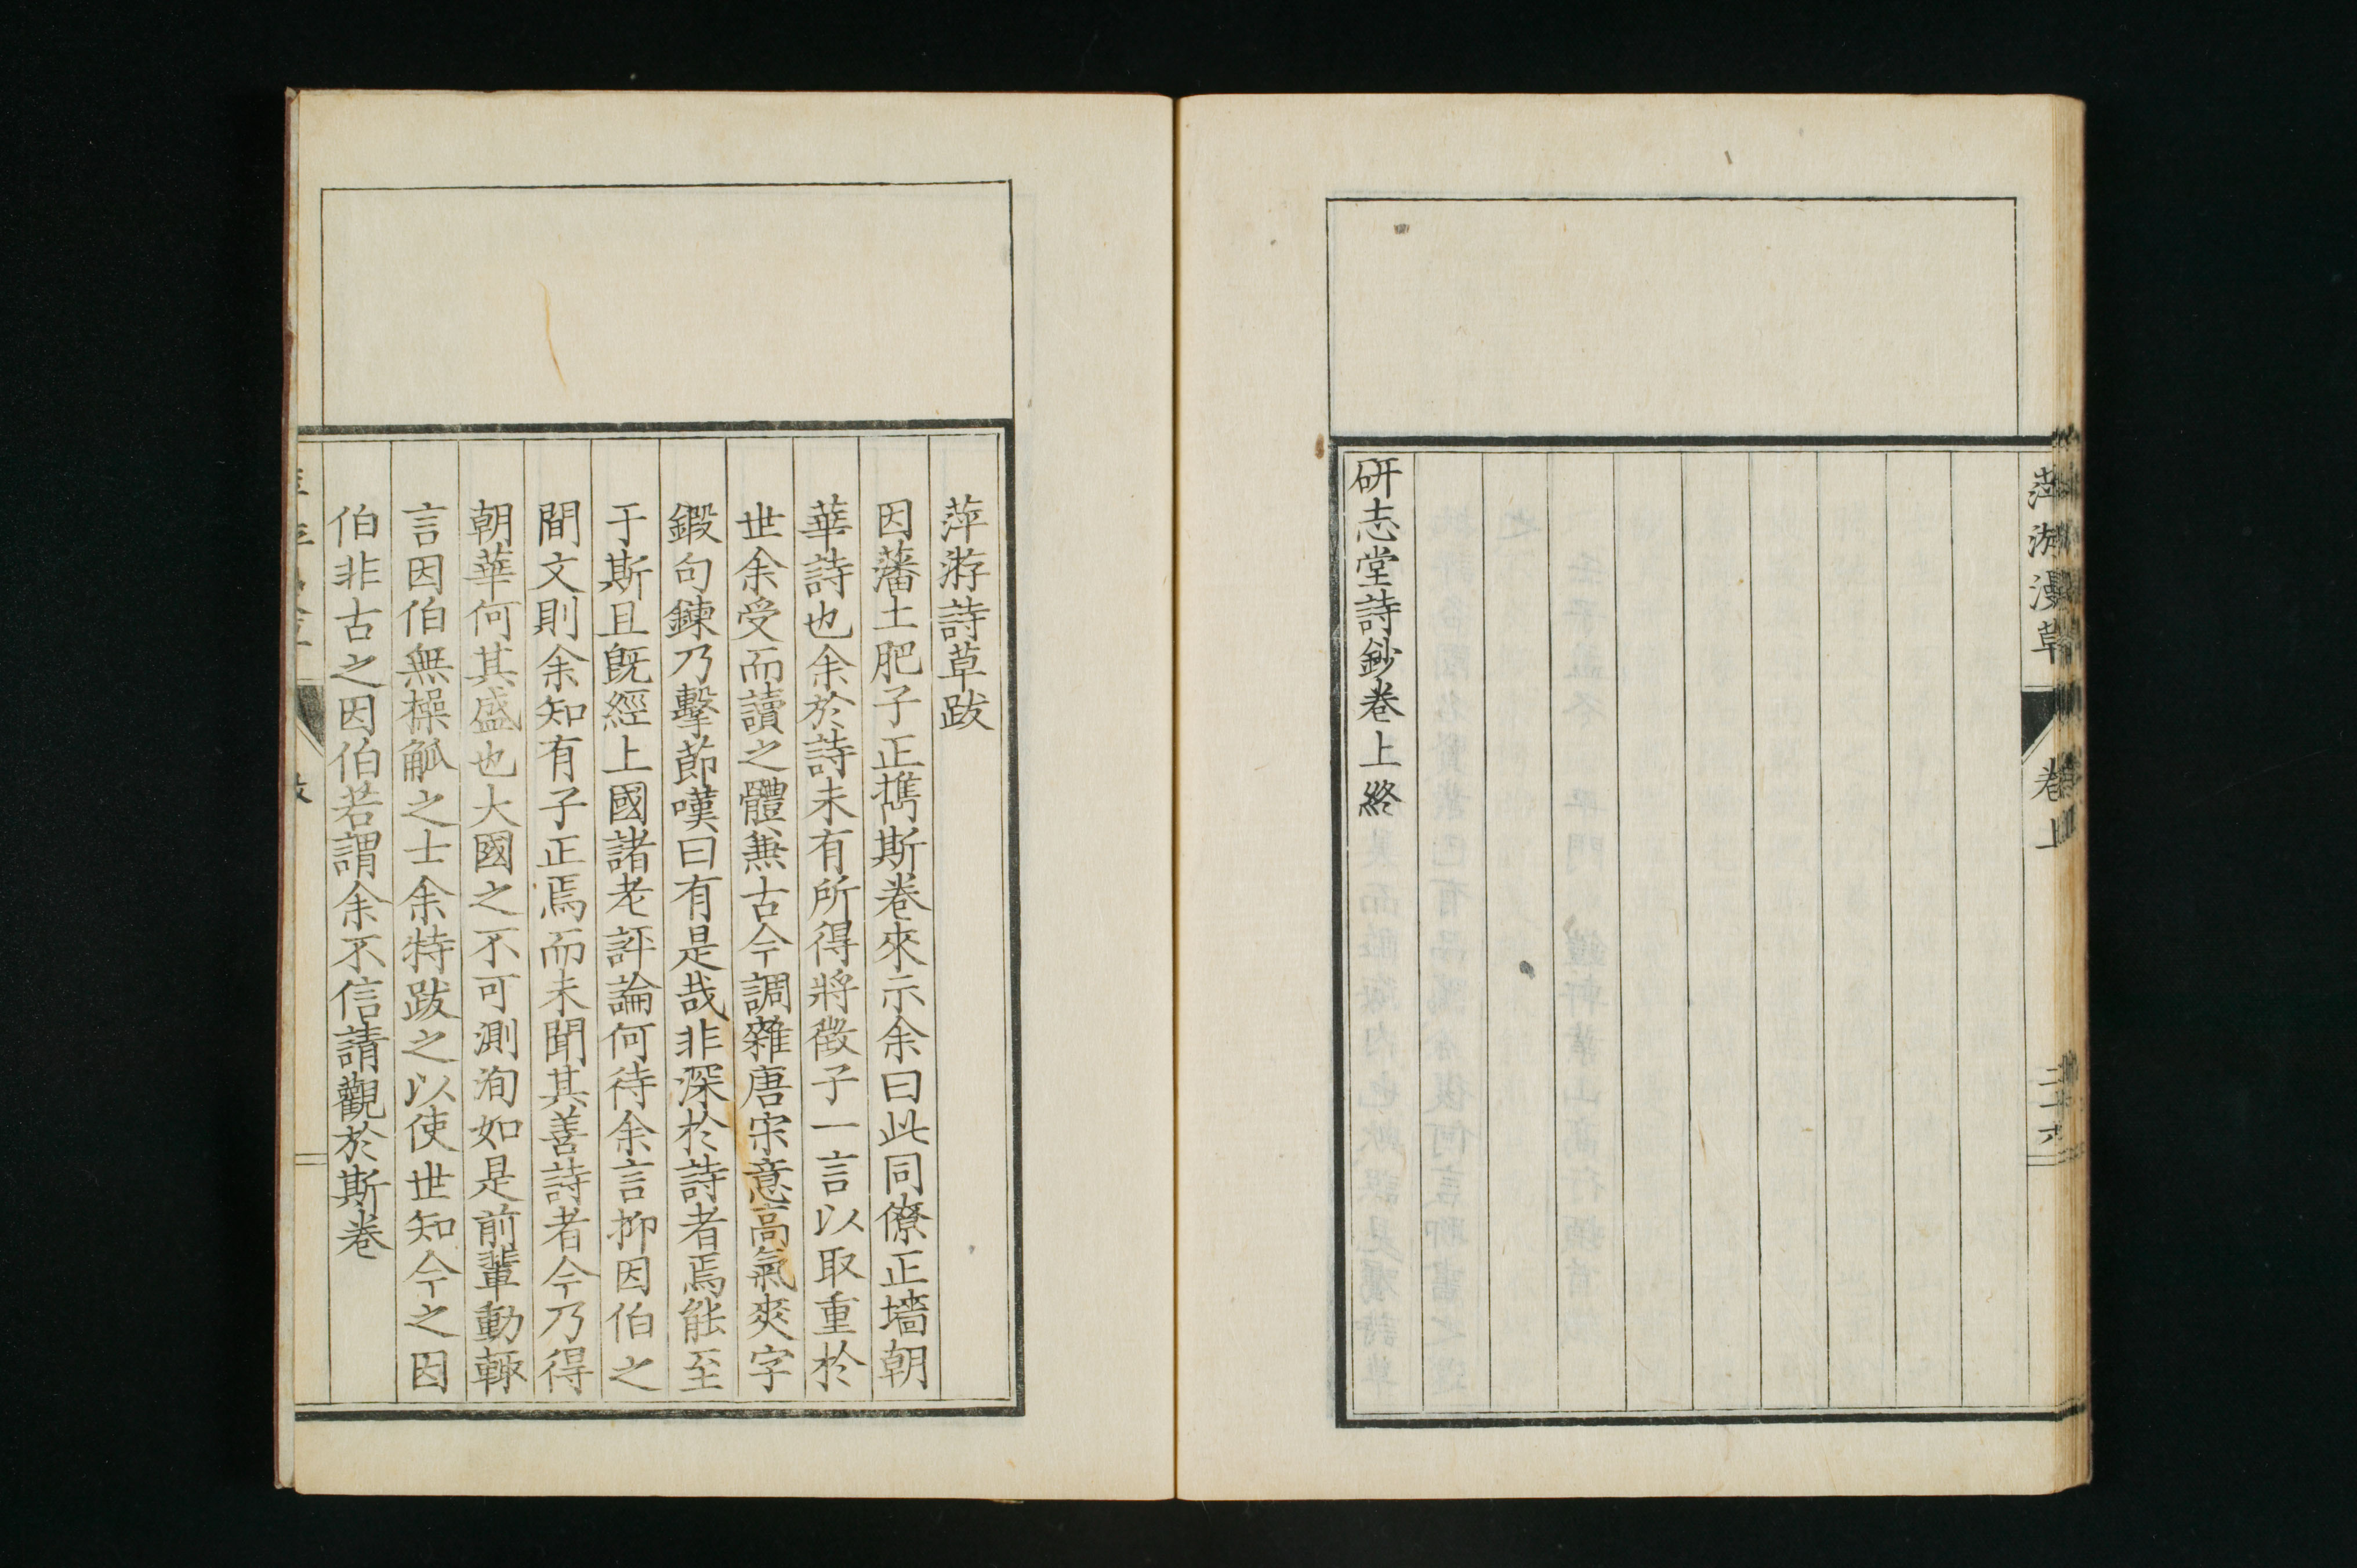 萍游漫草
卷上
二十六
研志堂詩鈔卷上終
萍游詩草跋
因藩土肥子正擕斯卷來示余曰此同僚正墻朝
華詩也余於詩未有所得將徵子一言以取重於
世余受而讀之體兼古今調雜唐宋意高氣爽字
鍛句鍊乃擊節嘆曰有是哉非深於詩者焉能至
于斯且既經上國諸老評論何待余言抑因伯之
間文則余知有子正焉而未聞其善詩者今乃得
朝華何其盛也大國之不可測洵如是前輩動輙
言因伯無操觚之士余特跋之以使世知今之因
伯非古之因伯若謂余不信請觀於斯卷